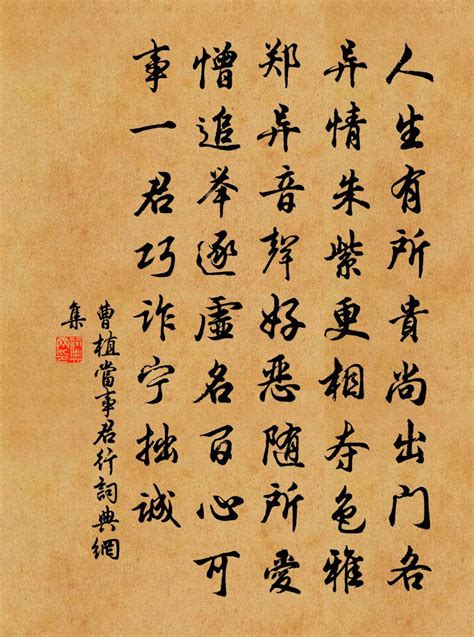 人生有所貴尚出门各
异情朱紫更相夺色雅
郑异音聲好恶随所愛
憎追举逐虚名百心可
事一君巧诈宁拙诚
曹植當事君行詞典網
集